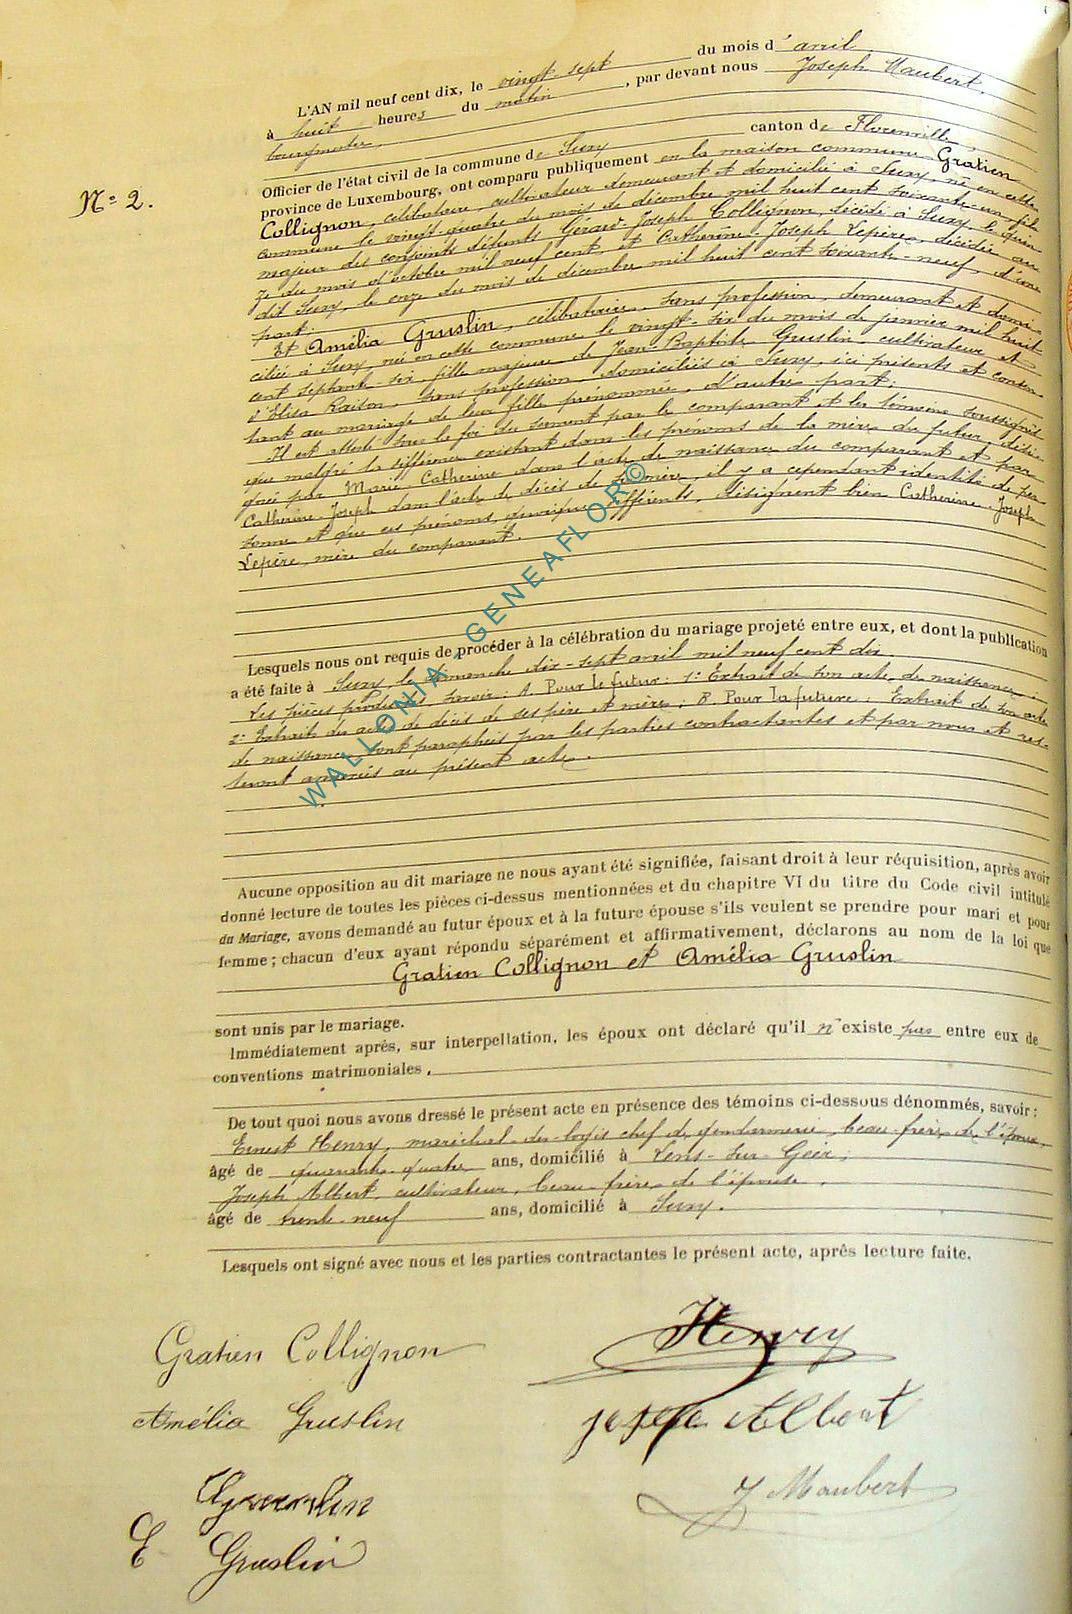 L'AN mil neuf cent dix, le vingt-sept du mois d'avril
à huit heures du matin, par devant nous Joseph Maubert,
bourgmestre,
Officier de l'état civil de la commune de Suxy canton de Florenville,
province de Luxembourg, ont comparu publiquement en la maison commune Gratien
Collignon, célibataire, cultivateur demeurant et domicilié à Suxy, né en cette
commune le vingt-quatre du mois de décembre mil huit cent soixante-un, fils
majeur des conjoints défunts Gérard-Joseph Collignon, décédé à Suxy, le quin-
ze du mois d'octobre mil neuf cent, et Catherine-Joseph Lepère, décédée au
dit Suxy, le onze du mois de décembre mil huit cent soixante-neuf, d'une
part.
Et Amélia Gruslin, célibataire, sans profession, demeurant et domi-
ciliée à Suxy, née en cette commune le vingt-six du mois de janvier mil huit
cent septante-six, fille majeure de Jean-Baptiste Gruslin, cultivateur et
d'Elisa Raison, sans profession, domiciliés à Suxy, ici présents et consen-
tant au mariage de leur fille prénommée, d'autre part;
Il est attesté sous la foi du serment par le comparant et les témoins soussignés
que malgré la différence existant dans les prénoms de la mère du futur, dési-
gnée par Marie Catherine dans l'acte de naissance du comparant et par
Catherine-Joseph dans l'acte de décès de sa mère, il y a cependant identité de per-
sonne et que ces prénoms, quoique différents, désignent bien Catherine-Joseph
Lepère, mère du comparant.
Lesquels nous ont requis de procéder à la célébration du mariage projeté entre eux, et dont la publication
a été faite à Suxy le dimanche dix-sept avril mil neuf cent dix.
Les pièces produites savoir: A. Pour le futur: 1° Extrait de son acte de naissance;
2° Extrait des actes de décès de ses père et mère; B. Pour la future: Extrait de son acte
de naissance, sont paraphées par les parties contractantes et par nous et res-
teront annexées au présent acte.
Aucune opposition au dit mariage ne nous ayant été signifiée, faisant droit à leur réquisition, après avoir
donné lecture de toutes les pièces ci-dessus mentionnées et du chapitre VI du titre du Code civil intitulé
du Mariage, avons demandé au futur époux et à la future épouse s'ils veulent se prendre pour mari et pour
femme; chacun d'eux ayant répondu séparément et affirmativement, déclarons au nom de la loi que
Gratien Collignon et Amélia Gruslin
sont unis par le mariage.
Immédiatement après, sur interpellation, les époux ont déclaré qu'il n'existe pas entre eux de
conventions matrimoniales.
De tout quoi nous avons dressé le présent acte en présence des témoins ci-dessous dénommés, savoir:
Ernest Henry, maréchal-des-logis chef de gendarmerie, beau-frère de l'épouse
âgé de quarante-quatre ans, domicilié à Lens-sur-Geer;
Joseph Albert, cultivateur, beau-frère de l'épouse,
âgé de trente-neuf ans, domicilié à Suxy.
Lesquels ont signé avec nous et les parties contractantes le présent acte, après lecture faite.
N° 2.
Gratien Collignon
Henry
Amélia Gruslin
Joseph Albert
Gruslin
J Maubert
E Gruslin
WALLONIA - GENEAFLOR©